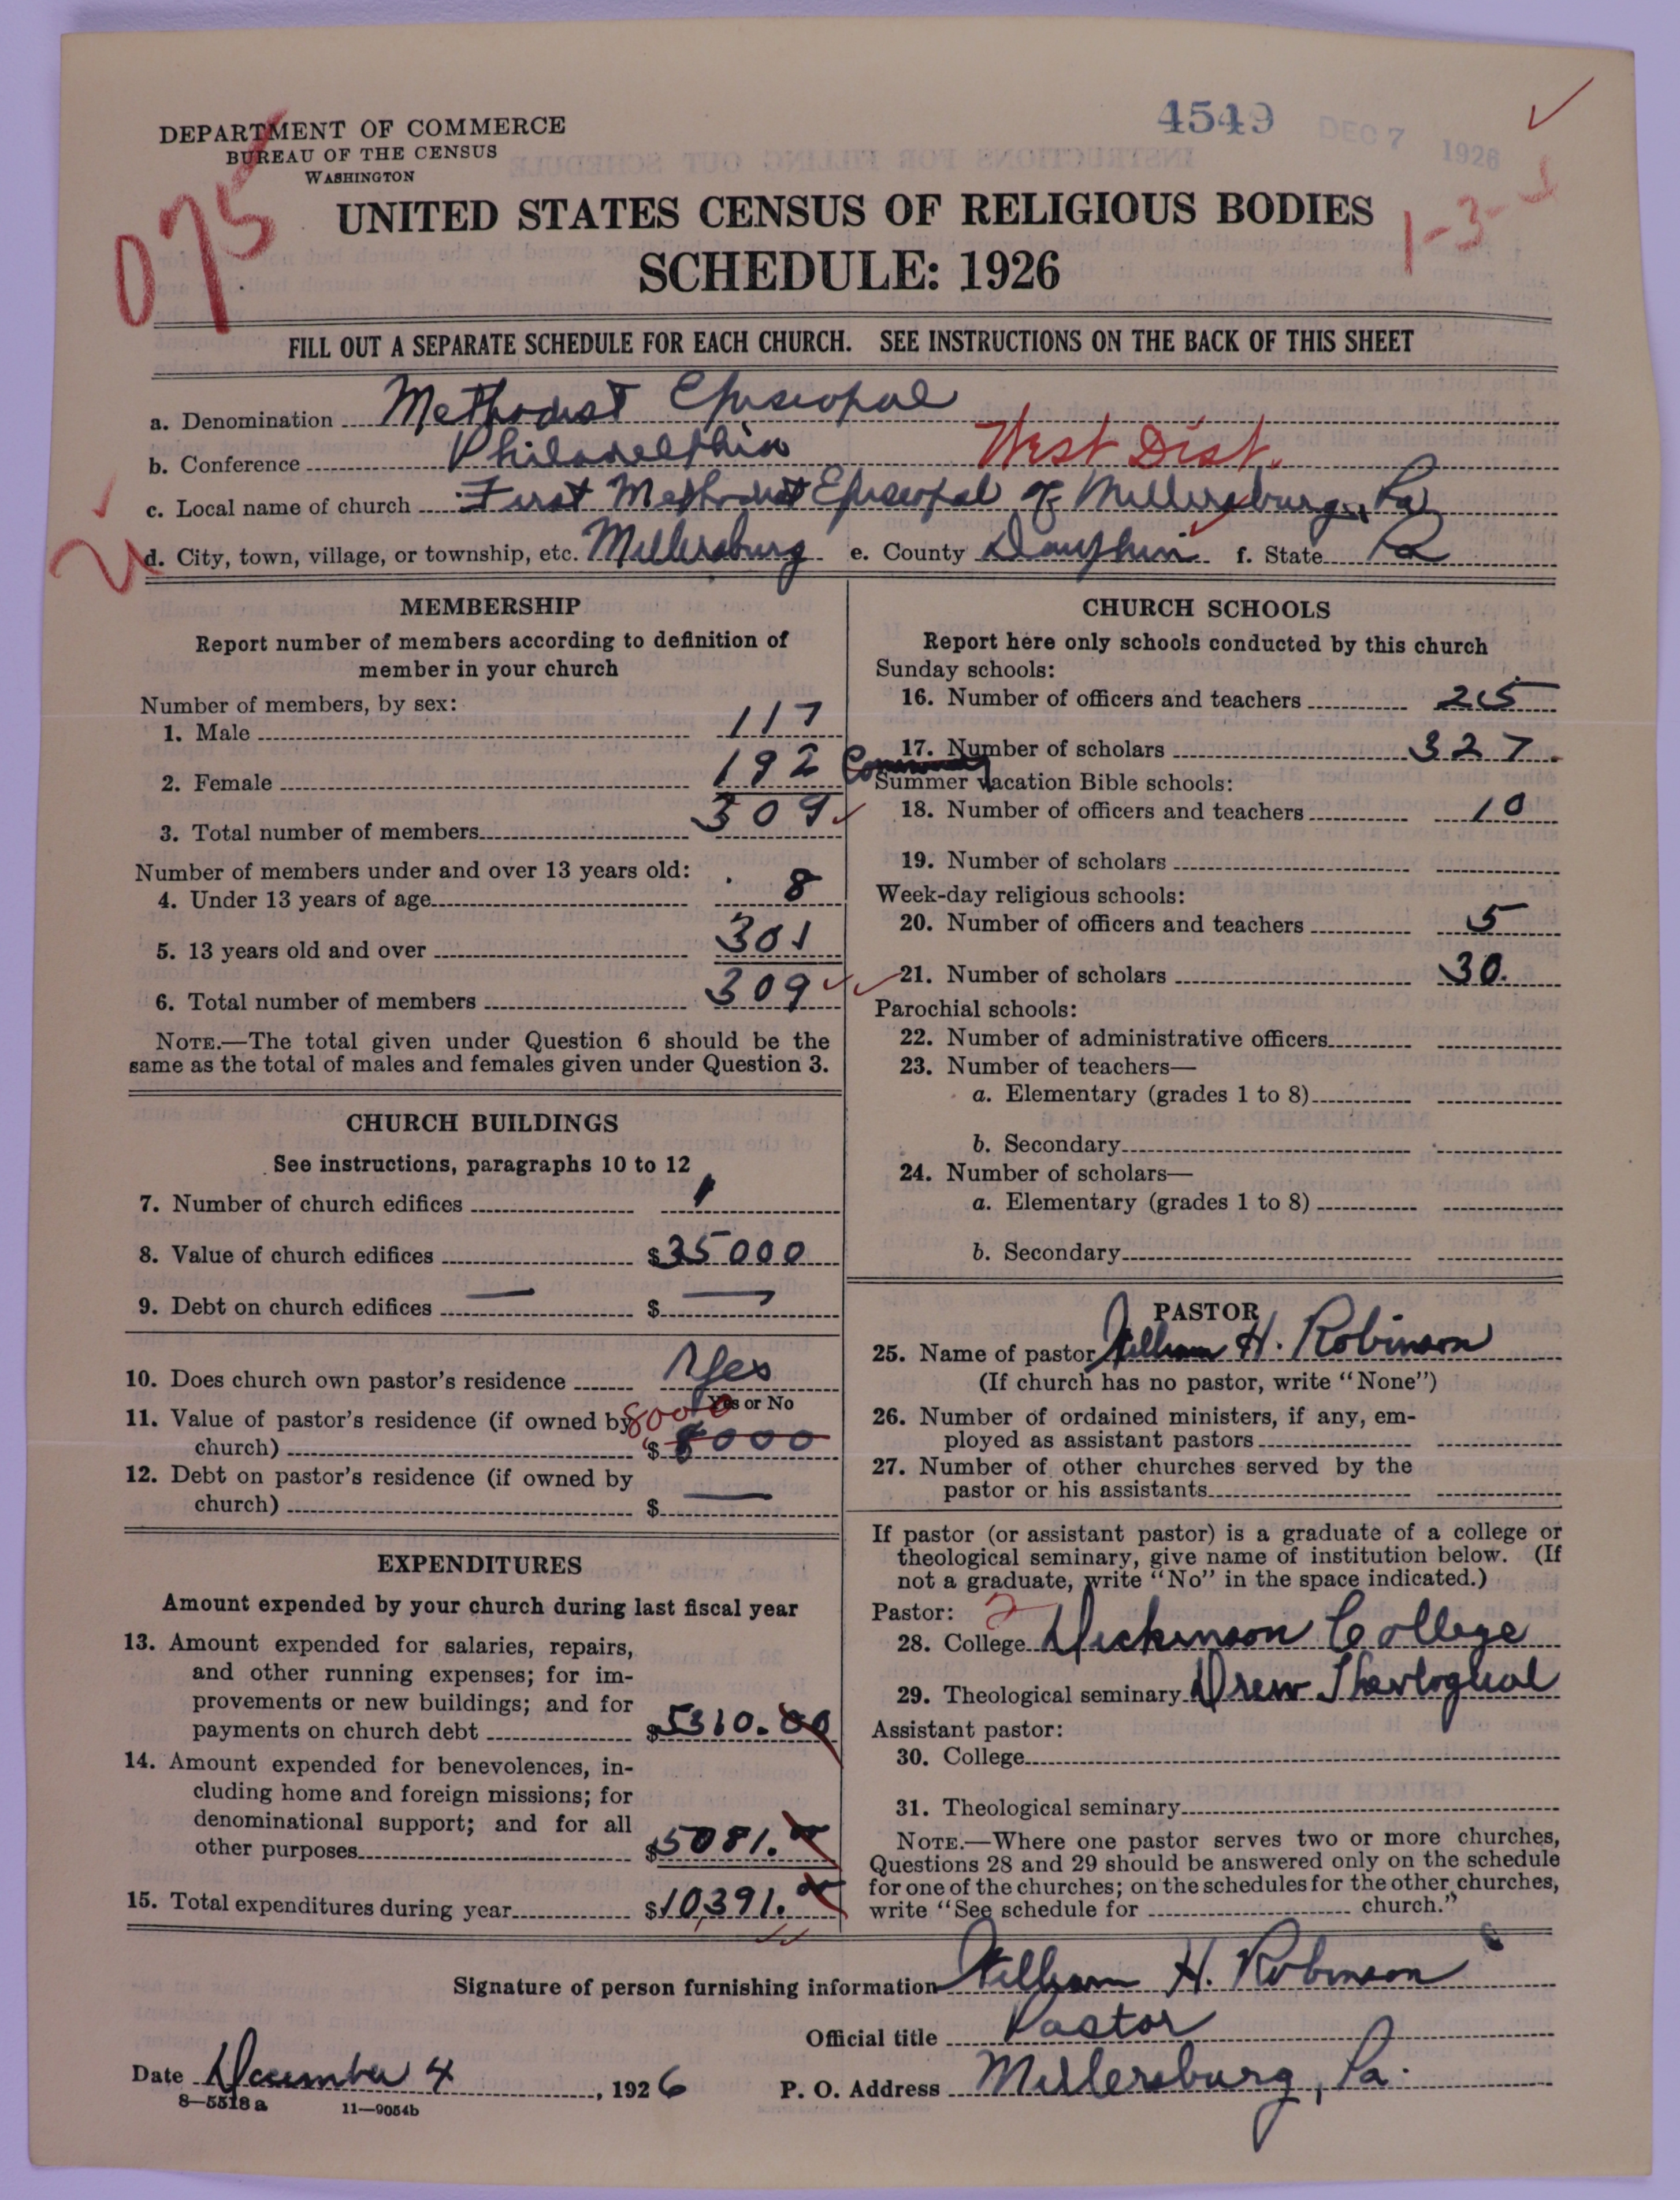 4549
DEC 7 1926
DEPARTMENT OF COMMERCE
BUREAU OF THE CENSUS
WASHINGTON
075
1-3-
UNITED STATES CENSUS OF RELIGIOUS BODIES
SCHEDULE: 1926
FILL OUT A SEPARATE SCHEDULE FOR EACH CHURCH. SEE INSTRUCTIONS ON THE BACK OF THIS SHEET
a. Denomination Methodist Episcopal
b. Conference Philadelphia West Dist.
c. Local name of church First Methodist Episcopal of Millersburg, Pa
d. City, town, village, or township, etc. Millersburg e. County Dauphin f. State Pa
MEMBERSHIP
Report number of members according to definition of
member in your church
Number of members, by sex:
1. Male 117
2. Female 192
3. Total number of members 309
Number of members under and over 13 years old:
4. Under 13 years of age 8
5. 13 years old and over 301
6. Total number of members 309
NOTE.—The total given under Question 6 should be the
same as the total of males and females given under Question 3.
CHURCH BUILDINGS
See instructions, paragraphs 10 to 12
7. Number of church edifices 1
8. Value of church edifices $35000
9. Debt on church edifices — $ —
10. Does church own pastor's residence Yes
Yes or No
11. Value of pastor's residence (if owned by 8000
church) $ 8000
12. Debt on pastor's residence (if owned by
church) $ —
EXPENDITURES
Amount expended by your church during last fiscal year
13. Amount expended for salaries, repairs,
and other running expenses; for im-
provements or new buildings; and for
payments on church debt $5310.00
14. Amount expended for benevolences, in-
cluding home and foreign missions; for
denominational support; and for all
other purposes $5081.00
15. Total expenditures during year $10,391.00
CHURCH SCHOOLS
Report here only schools conducted by this church
Sunday schools:
16. Number of officers and teachers 25
17. Number of scholars 327.
Summer vacation Bible schools:
18. Number of officers and teachers 10
19. Number of scholars
Week-day religious schools:
20. Number of officers and teachers 5
21. Number of scholars 30.
Parochial schools:
22. Number of administrative officers
23. Number of teachers—
a. Elementary (grades 1 to 8)
b. Secondary
24. Number of scholars—
a. Elementary (grades 1 to 8)
b. Secondary
PASTOR
25. Name of pastor William H. Robinson
(If church has no pastor, write "None")
26. Number of ordained ministers, if any, em-
ployed as assistant pastors
27. Number of other churches served by the
pastor or his assistants
If pastor (or assistant pastor) is a graduate of a college or
theological seminary, give name of institution below. (If
not a graduate, write "No" in the space indicated.)
Pastor: 2
28. College Dickinson College
29. Theological seminary Drew Theological
Assistant pastor:
30. College
31. Theological seminary
NOTE.—Where one pastor serves two or more churches,
Questions 28 and 29 should be answered only on the schedule
for one of the churches; on the schedules for the other churches,
write "See schedule for church."
Signature of person furnishing information William H. Robinson
Official title Pastor
Date December 4, 1926 P. O. Address Millersburg, Pa.
8—5518a 11—9054b